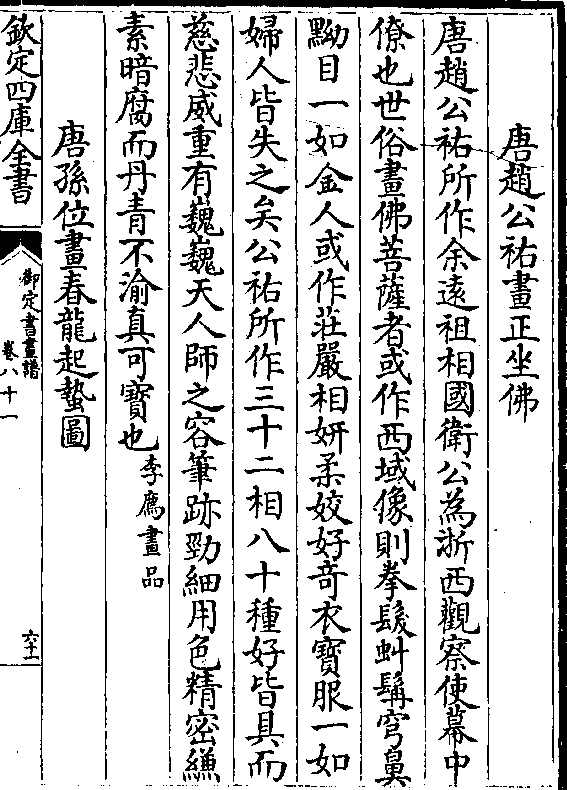 唐趙公祐畫正坐佛
唐趙公祐所作余遠祖相國衛公為浙西觀察使幕中
僚也世俗畫佛菩薩者或作西域像則拳髮虯鬚穹鼻
黝目一如金人或作莊嚴相妍柔姣好奇衣寶服一如
婦人皆失之矣公祐所作三十二相八十種好皆具而
慈悲威重有巍巍天人師之容筆跡勁細用色精密縑
素暗腐而丹青不渝真可寶也李廌畫品
唐孫位畫春龍起蟄圖
欽定四庫全書
御定書畫譜
卷八十一